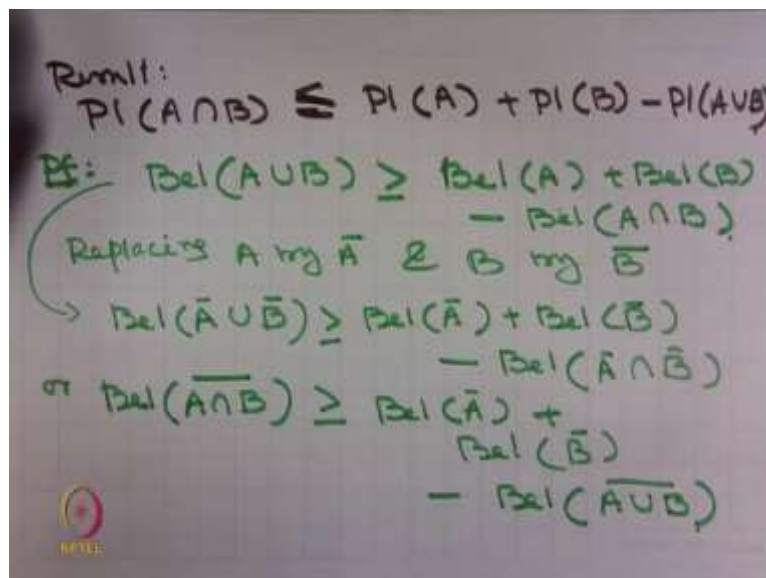 Result:
Pl(A∩B) ≤ Pl(A) + Pl(B) - Pl(A∪B)
Pf: Bel(A∪B) ≥ Bel(A) + Bel(B)
- Bel(A∩B)
Replacing A by Ā & B by B̄
Bel(Ā∪B̄) ≥ Bel(Ā) + Bel(B̄)
- Bel(Ā∩B̄)
or Bel(\overline{A∩B}) ≥ Bel(Ā) +
Bel(B̄)
- Bel(\overline{A∪B})
NPTEL